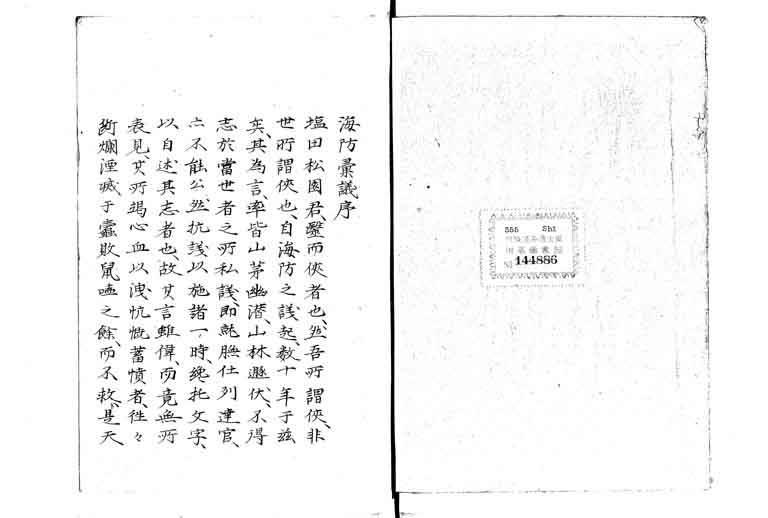 555 Shi
144886
海防彙議序
塩田松園君、毉而俠者也、然吾所謂俠、非
世所謂俠也、自海防之議起、数十年于茲
矣、其為言、率皆山茅幽潜、山林遯伏、不得
志於當世者之所私議、即膴仕列達官、
亦不能公然抗議以施諸一時、纔托文字、
以自述其志者也、故其言雖偉、而竟無所
表見、其所竭心血以洩忼慨蓄憤者、往々
断爛湮滅于蠹敗鼠嗑之餘、而不救、是天